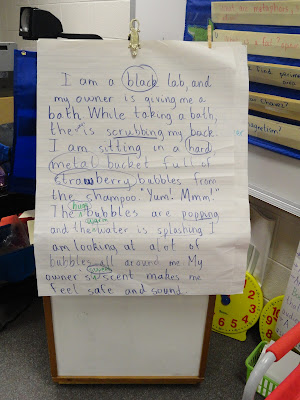 I am a black lab, and
my owner is giving me a
bath. While taking a bath,
they is scrubbing my back.
I am sitting in a hard,
metal bucket full of
strawberry bubbles from
the shampoo. "Yum! Mmm!"
The bubbles are popping
and the warm water is splashing. I
am looking at alot of
bubbles all around me. My
owner's scent makes me
feel safe and sound.
magnetism?